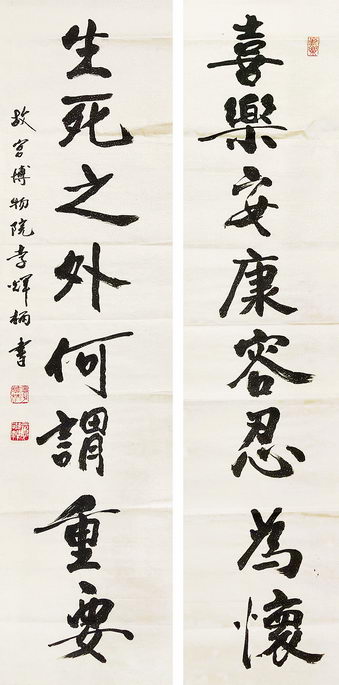 喜樂安康容忍為懷
生死之外何謂重要
故宮博物院李輝柄書